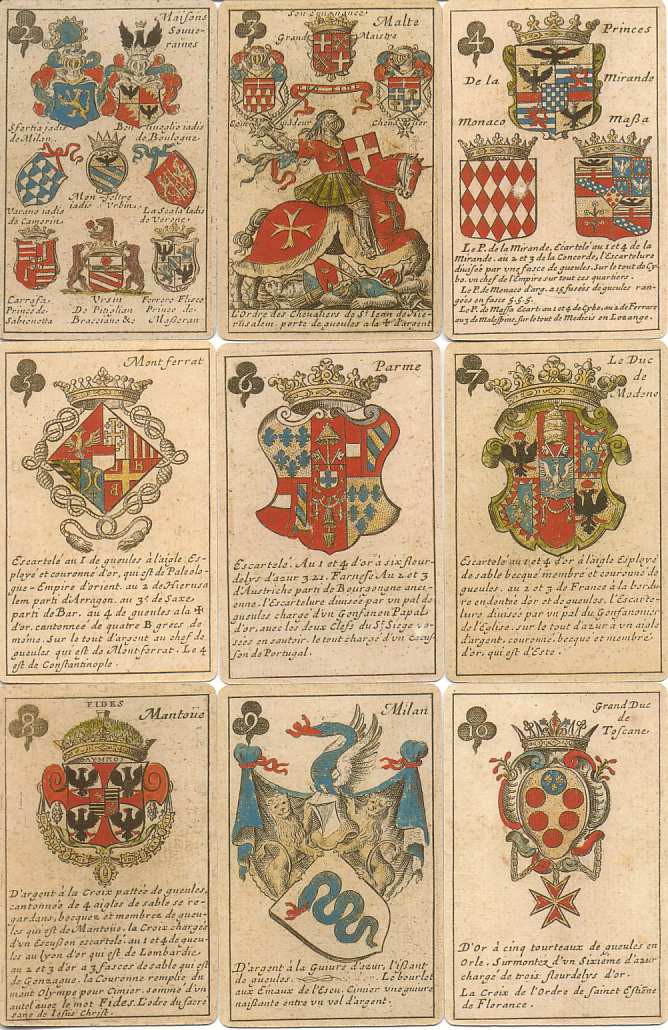 2
Maisons
Souve-
raines
Sforția iadis
de Milan
Ben tiuoglio iadis
de Boulogne
Varano iadis
de Camerin
Mon-feltre
iadis Vrbin
La Scala iadis
de Verone
Carrafa
Prince de
Sabionetta
Vrsin
De Pitiglian
Bracsiano &c
Ferrero Flisco
Prince de
Masseran
3
Malte
Grand Maistre
Com deur
Cheua lier
L'Ordre des Cheualiers de St. Iean de Hie-
rusalem. porte de gueules a la ✠ d'argent
4
Princes
De la Mirande
Monaco Maßa
Le P. de la Mirande, Ecartelé au 1 et 4 de la
Mirande. au 2 et 3 de la Concorde, l'Escarteleure
diuisée par vne fasce de gueules. Sur le tout de Cy-
bo. vn chef de l'Empire sur tout ces quartiers.
Le P. de Monaco d'arg. a 15 fusées de gueules ran-
gées en fasce 5.5.5.
Le P. de Massa Ecart. au 1 et 4 de Cybo, au 2 de Ferrare
au 3 de Malespine, sur le tout de Medicis en Lozange.
5
Montferrat
Escartelé au 1 de gueules à l'aigle Es-
ployé et couronné d'or, qui est de Paleolo-
gue - Empire d'orient. au 2 de Hierusa
lem parti d'Arragon. au 3.e de Saxe
parti de Bar. au 4 de gueules a la ✠
d'or. cantonnée de quatre B grecs de
mesme. Sur le tout d'argent au chef de
gueules qui est de Montferrat. Le 4
est de Constantinople.
6
Parme
Escartelé. Au 1 et 4 d'or à six fleur-
delys d'azur 3.2.1. Farnese. Au 2 et 3
d'Austriche parti de Bourgongne anci-
enne. l'Escarteleure diuisée par vn pal de
gueules chargé d'vn Gonfanon Papal
d'or, auec les deux Clefs du St. Siege po-
sées en sautoir. le tout chargé d'vn Escus-
son de Portugal.
7
Le Duc
de
Modene
Escartelé au 1 et 4 d'or à l'aigle Esployé
de sable becqué membré et couronné de
gueules. au 2 et 3 de France à la bordu
re endentée d'or et de gueules. l'Escarte-
leure diuisée par vn pal du Gonfanonier
de l'Eglise. sur le tout d'azur à vn aigle
d'argent. couronné, becqué et membré
d'or, qui est d'Este.
8
FIDES
Mantoüe
D'argent à la Croix pattée de gueules,
cantonnée de 4 aigles de sable se re-
gardans, becquez et membrez de gueu-
les qui est de Mantoüe. la Croix chargée
d'vn Escusson escartelé. au 1 et 4 de gueu-
les au lyon d'or qui est de Lombardie.
au 2 et 3 d'or a 3 fasces de sable qui est
de Gonzague. la Couronne remplie du
mont Olympe pour Cimier, sommé d'vn
autel auec le mot Fides. L'odre du sacre
sang de Iesus Christ.
9
Milan
D'argent à la Guiure d'azur, l'issant
de gueules. Le bourlet
aux Emaux de l'Escu. Cimier vne guiure
naißante entre vn vol d'argent.
10
Grand Duc
de
Toscane
D'Or à cinq tourteaux de gueules en
Orle. Surmontez d'vn Sixième d'azur
chargé de trois fleurdelys d'or.
La Croix de l'Ordre de sainct Estiene
de Florance.